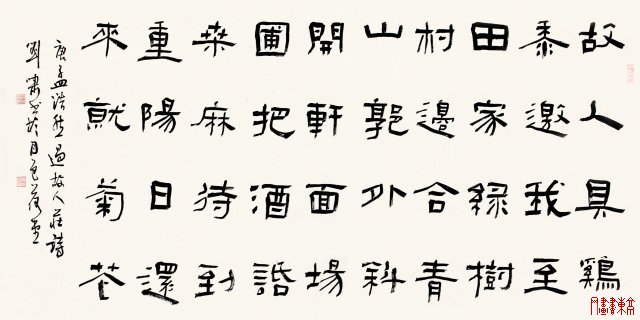 故人具鷄
黍邀我至
田家綠樹
村邊合青
山郭外斜
開軒面場
圃把酒話
桑麻待到
重陽日還
來就菊花
唐孟浩然過故人莊詩
劉書於月色